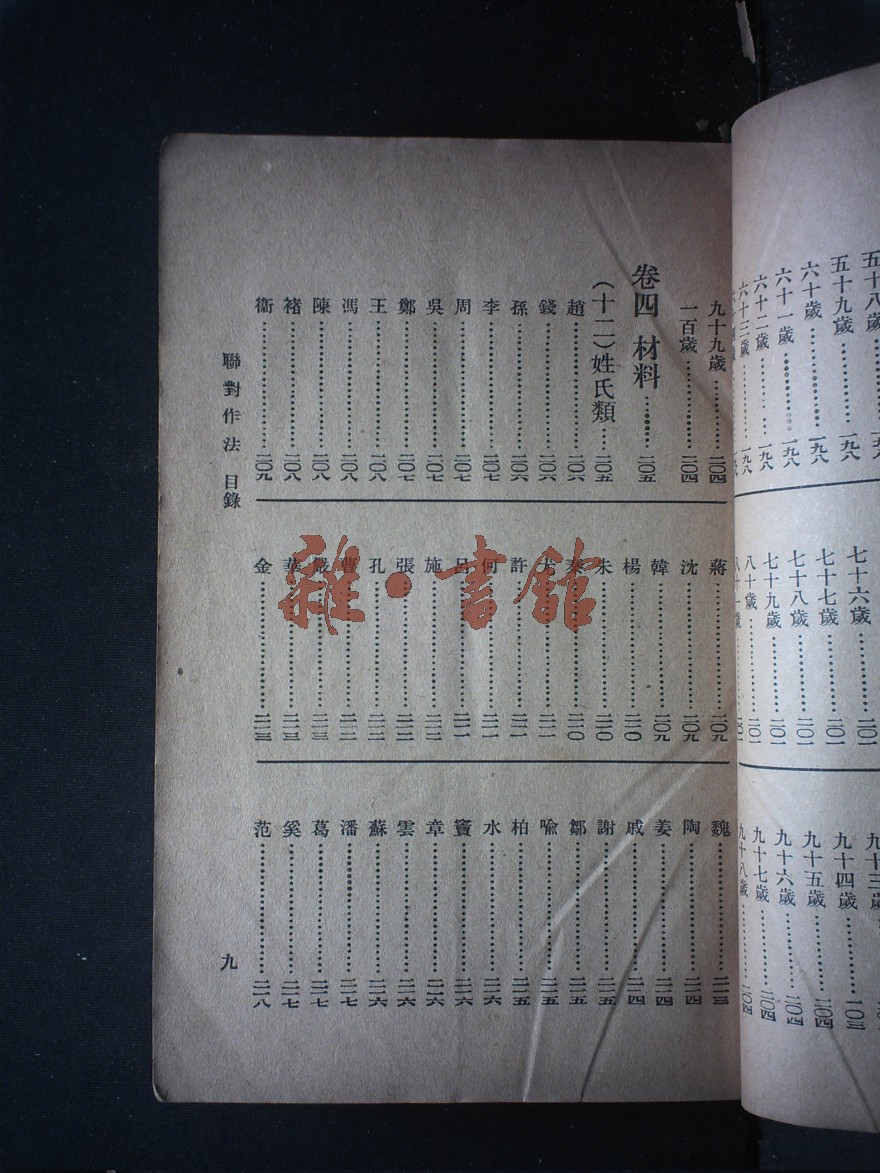 五十八歲
五十九歲……一九八
六十歲……一九八
六十一歲……一九八
六十二歲……一九八
六十三歲……一九八
七十六歲……二〇一
七十七歲……二〇一
七十八歲……二〇一
七十九歲……二〇一
八十歲……二〇一
八十一歲……二〇一
九十三歲
九十四歲……二〇三
九十五歲……二〇四
九十六歲……二〇四
九十七歲……二〇四
九十八歲……二〇四
九十九歲……二〇四
一百歲……二〇四
卷四 材料……二〇五
(十二)姓氏類……二〇五
趙……二〇六
錢……二〇六
孫……二〇六
李……二〇七
周……二〇七
吳……二〇七
鄭……二〇七
王……二〇八
馮……二〇八
陳……二〇八
褚……二〇八
衞……二〇九
蔣……二〇九
沈……二〇九
韓……二〇九
楊……二一〇
朱……二一〇
秦……二一〇
尤……二一一
許……二一一
何……二一一
呂……二一一
施……二一二
張……二一二
孔……二一二
曹……二一二
嚴……二一三
華……二一三
金……二一三
魏……二一三
陶……二一四
姜……二一四
戚……二一四
謝……二一五
鄒……二一五
喻……二一五
柏……二一五
水……二一六
竇……二一六
章……二一六
雲……二一六
蘇……二一六
潘……二一七
葛……二一七
奚……二一七
范……二一八
聯對作法 目錄
九
雜·書館